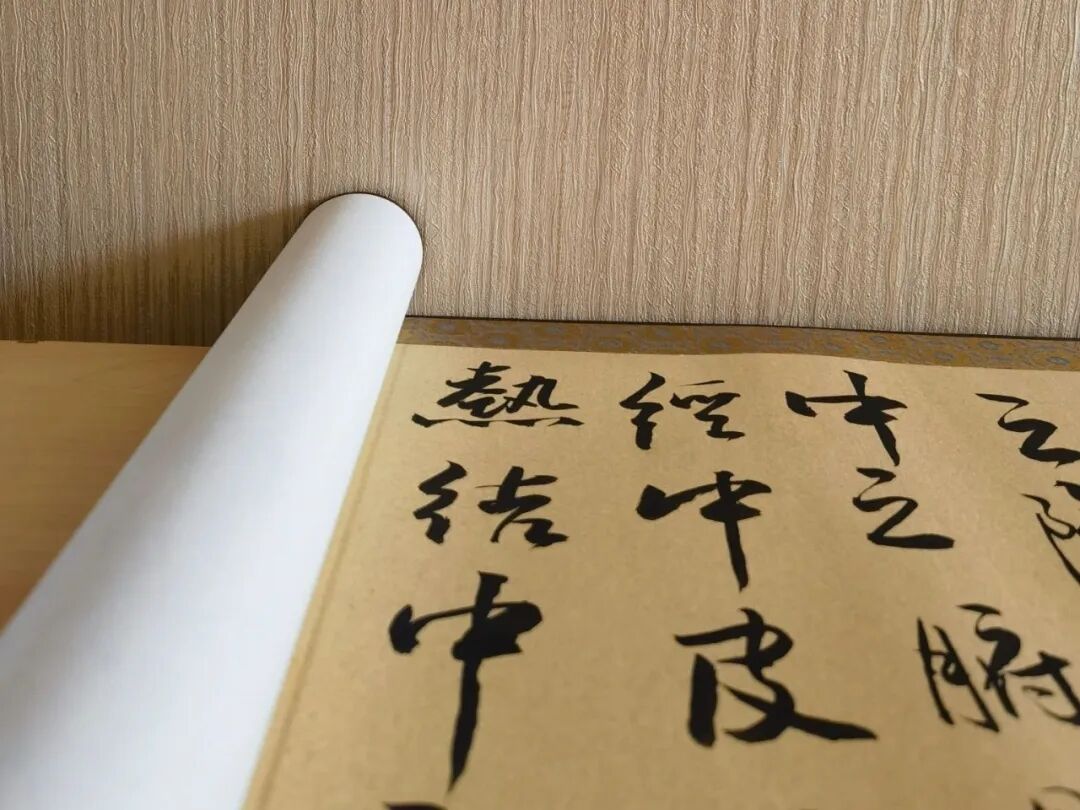 之
中之腑
經中皮
熱結中